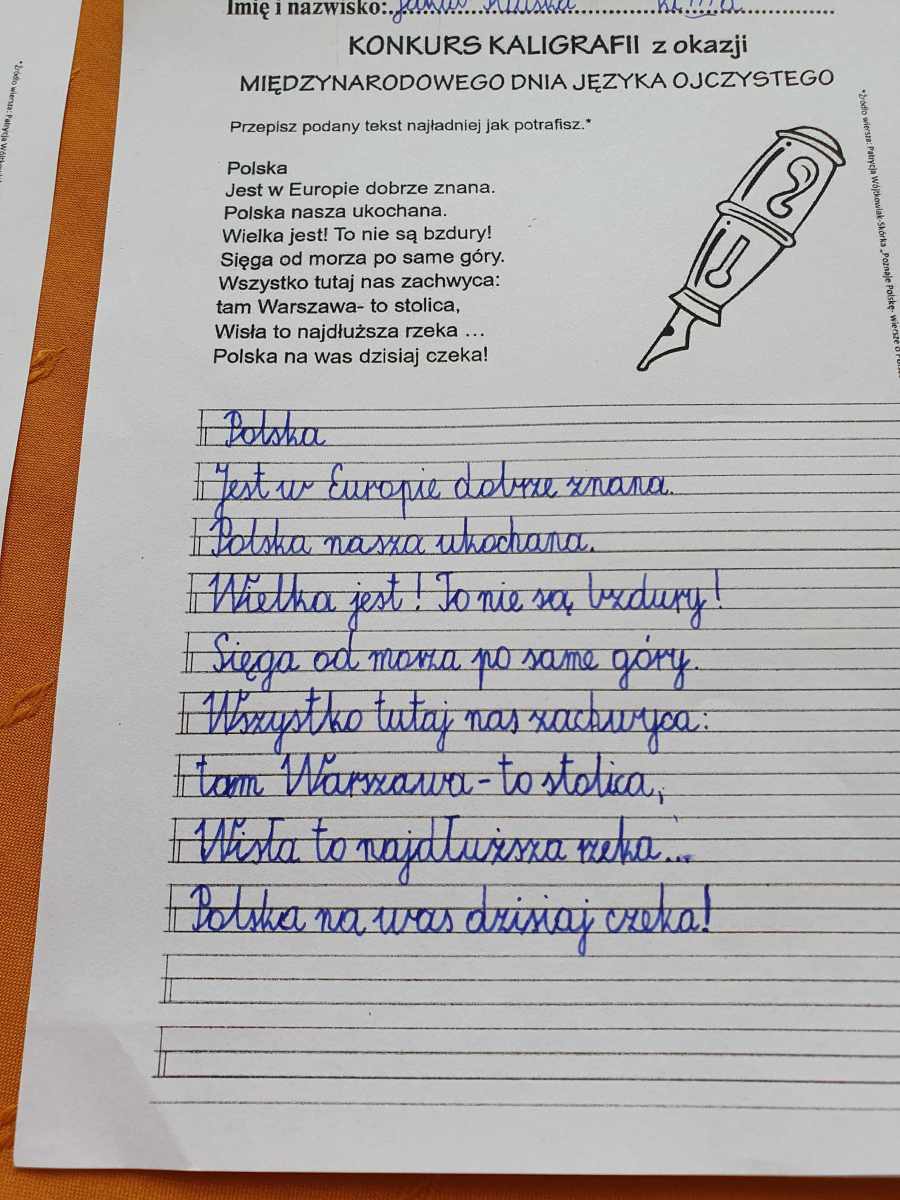 Imię i nazwisko:
KONKURS KALIGRAFII z okazji
MIĘDZYNARODOWEGO DNIA JĘZYKA OJCZYSTEGO
Przepisz podany tekst najładniej jak potrafisz.*
Polska
Jest w Europie dobrze znana.
Polska nasza ukochana.
Wielka jest! To nie są bzdury!
Sięga od morza po same góry.
Wszystko tutaj nas zachwyca:
tam Warszawa- to stolica,
Wisła to najdłuższa rzeka ...
Polska na was dzisiaj czeka!
*Źródło wiersza: Patrycja Wójtkowiak-Skórka „Poznaje Polskę- wiersze o
*Źródło wiersza: Patrycja
Polska
Jest w Europie dobrze znana.
Polska nasza ukochana.
Wielka jest! To nie są bzdury!
Sięga od morza po same góry.
Wszystko tutaj nas zachwyca:
tam Warszawa- to stolica,
Wisła to najdłuższa rzeka...
Polska na was dzisiaj czeka!